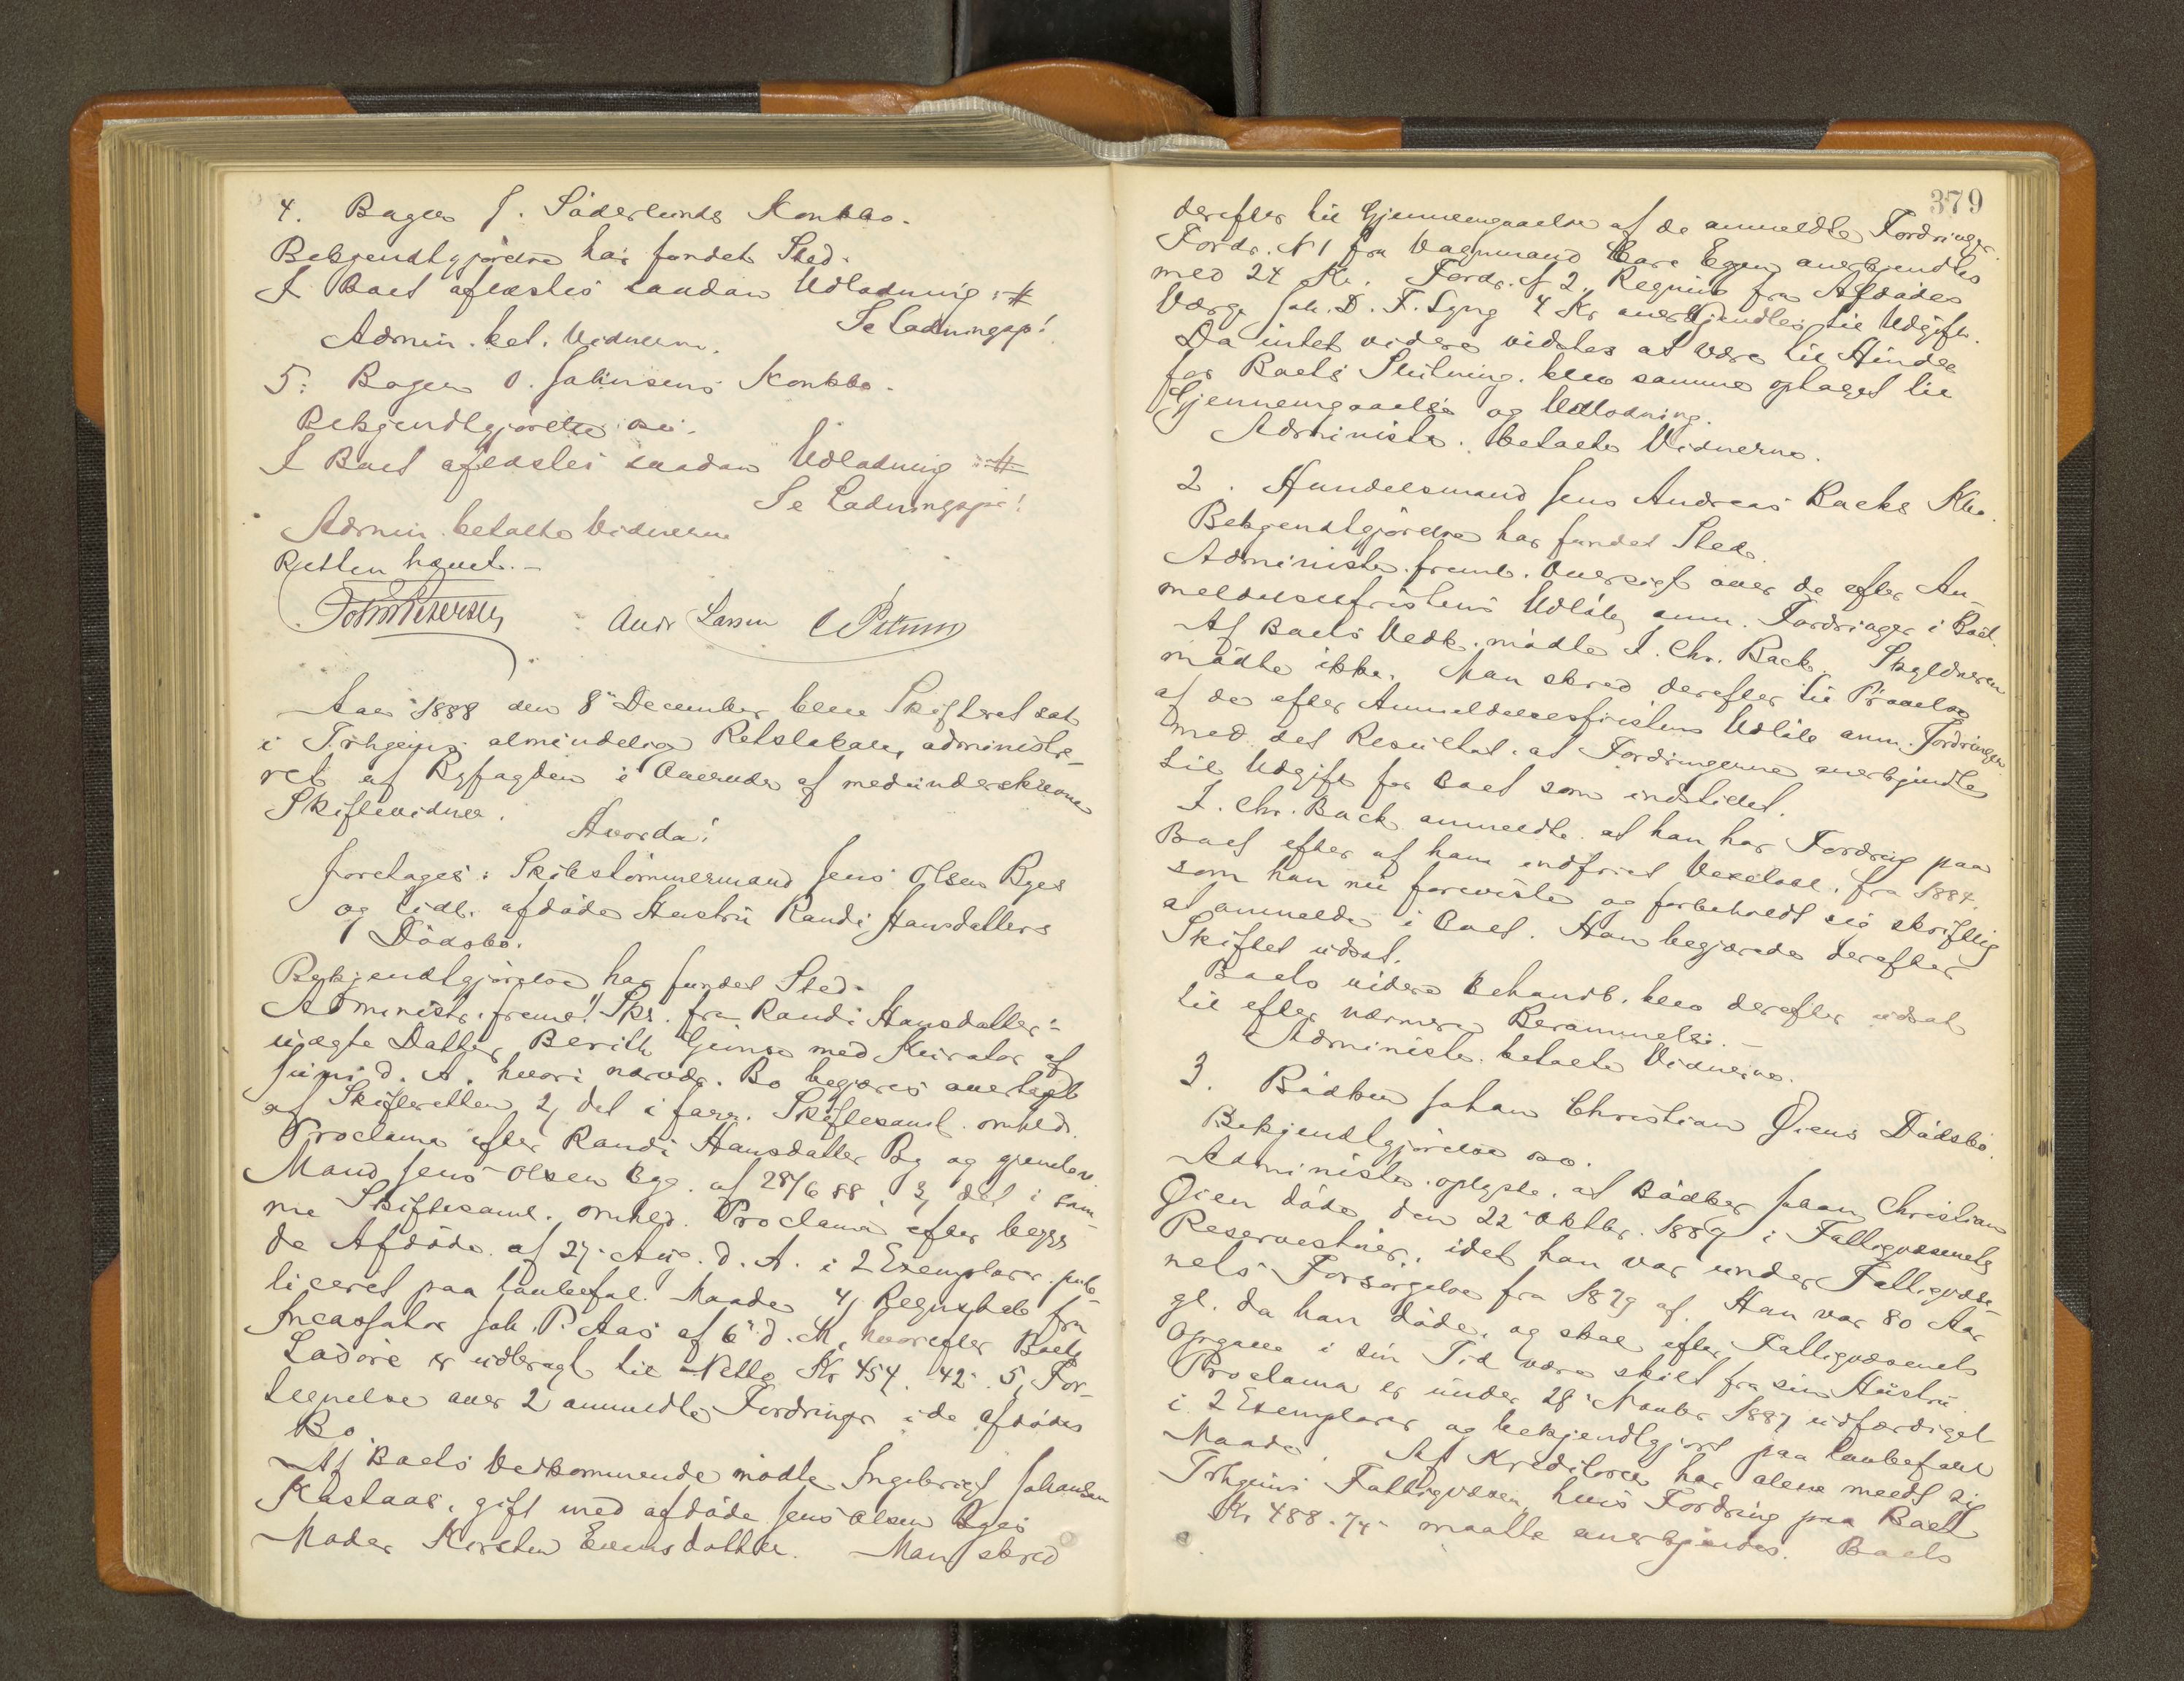 4. Bager J. Söderlunds Konkbo.
Bekjendtgjörelse har fundet Sted.
I Boet aflæstes saadan Udlodning: #
Se Lodningsp!
Admin. bet. Vidnerne.
5: Bager O. Johnsens Konkbo.
Bekjendtgjörelse
I Boet aflæstes saadan Udlodning #
Se Lodningspr!
Admin. betalte Vidnerne
Retten hævet.-
Andr Larsen
Aar 1888 den 8de December blev Skifteret sat
i Trhjems almindelige Retslokale, administre-
ret af Byfogden i Overvær af medunderskrevne
Skiftevidner.
Hvorda:
Foretages: Skibstömmermand Jens Olsen Byes
og tidl. afdöde Hustru Randi Hansdatters
Dödsbo.
Bekjendtgjörelse har fundet Sted.
Administr. freml. 1, Skr. fra Randi Hansdatters
uægte Datter Berith med Kurator af
Juni d. A. hvori nærvær. Bo begjæres overtaget
af Skifteretten 2, det i Skiftesaml. omhdl.
Proclama efter Randi Hansdatter By og gjenlev.
Mand Jens Olsen Bye af 28/6 88. 3, det i sam-
me Skiftesaml. omhdl. Proclama efter begge
de Afdöde af 27. Aug. d. A. i 2 Exemplarer pub-
liceret paa lovbefal. Maade 4, Regnskab fra
Incassator Joh. P. Aas af 6te d. M, hvorefter Boets
Lösöre er udbragt til Netto Kr 454. 42. 5, For-
tegnelse over 2 anmeldte Fordringer i de afdödes
Bo.
Af Boets Vedkommende mödte Ingebrigt Johansen
Kastaas, gift med afdöde Jens Olsen Byes
Moder Kirsten Evensdatter. Man skred
379
derefter til Gjennemgaaelse af de anmeldte Fordringer.
Fordr. N 1 fra Vognmand anerkjendtes
med 24 Kr. Fordr. N 2, Regning fra Afdödes
Værge Joh. D. F. Lyng 4 Kr anerkjendtes til Udgift.
Da intet videre vidstes at være til Hinder
for Boets Slutning, blev samme optaget til
Gjennemgaaelse og Udlodning.
Administr. betalte Vidnerne.
2. Handelsmand Jens Andreas Backs Kbo.
Bekjendtgjörelse har fundet Sted.
Administr. freml. Oversigt over de efter An-
meldelsesfristens Udlöb anm. Fordringer i Boet.
Af Boets Vedk. mödte I. Chr. Back. Skyldneren
mödte ikke. Man skred derefter til Prövelse
af de efter Anmeldelsesfristens Udlöb anm. Fordringer
med det Resultat, at Fordringerne anerkjendtes
til Udgift for Boet som indstillet.
I. Chr. Back anmeldte at han har Fordring paa
Boet efter af ham indfriet Vexelobl. fra 1884.
som han nu foreviste og forbeholdt sig skriftlig
at anmelde i Boet. Han begjærede derefter
Skiftet udsat.
Boets videre Behandl. blev derefter udsat
til efter nærmere Berammelse.-
Administr. betalte Vidnerne.
3. Bödker Johan Christian Öiens Dödsbo.
Bekjendtgjörelse
Administr. oplyste, at Bödker Johan Christian
Öien döde den 22de Oktbr. 1887 i Fattigvæsenets
idet han var under Fattigvæse-
nets Forsörgelse fra 1879 af. Han var 80 Aar
gl. da han döde, og skal efter Fattigvæsenets
Opgave i sin Tid være skilt fra sin Hustru.
Proclama er under 28de Novbr 1887 udfærdiget
i 2 Exemplarer og bekjendtgjort paa lovbefalet
Maade. Af Kreditorer har alene meldt sig
Trhjems Fattigvæsen, hvis Fordring paa Boet
Kr 488.74- maatte anerkjendes. Boets